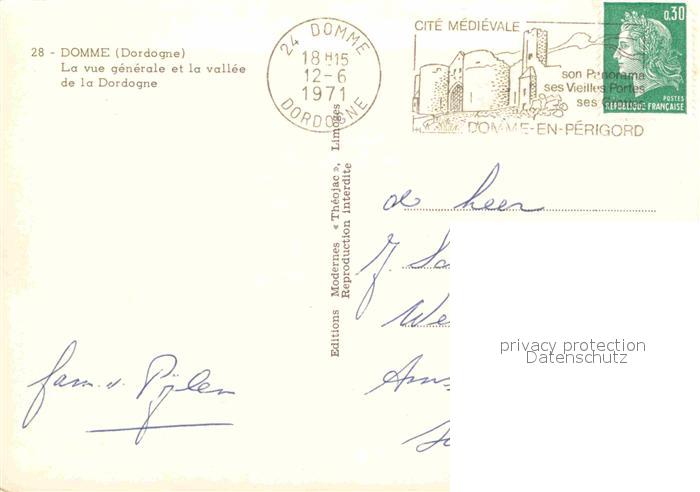 28 - DOMME (Dordogne)
La vue générale et la vallée
de la Dordogne
24 DOMME
18 H15
12-6
1971
DORDOGNE
CITÉ MÉDIÉVALE
son Panorama
ses Vieilles Portes
ses
DOMME-EN-PÉRIGORD
0,30
POSTES
RÉPUBLIQUE FRANÇAISE
Editions Modernes « Théojac », Limoges
Reproduction interdite
de heer
J.
privacy protection
Datenschutz
fam. v. Pijlen